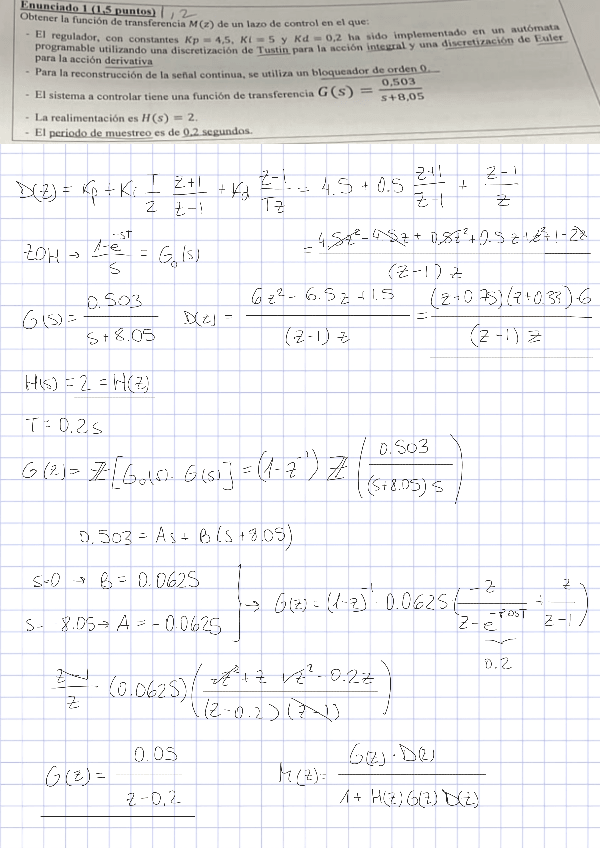 Enunciado 1 (1,5 puntos) 1,2
Obtener la función de transferencia M(z) de un lazo de control en el que:
- El regulador, con constantes Kp = 4,5, Ki = 5 y Kd = 0,2 ha sido implementado en un autómata
programable utilizando una discretización de Tustin para la acción integral y una discretización de Euler
para la acción derivativa
- Para la reconstrucción de la señal continua, se utiliza un bloqueador de orden 0.
- El sistema a controlar tiene una función de transferencia G(s) = 0,503 / s+8,05
- La realimentación es H(s) = 2.
- El periodo de muestreo es de 0,2 segundos.
D(z) = Kp + Ki T/2 z+1/z-1 + Kd z-1/Tz = 4.5 + 0.5 z+1/z-1 + z-1/z
ZOH → 1-e^-sT / s = G₀(s)
= 4,5z² - 4,5z + 0,5z² + 0,5z + z² + 1 - 2z / (z-1) z
G(s) = 0.503 / s+8.05
D(z) = 6z² - 6.5z + 1.5 / (z-1) z = (z+0.75)(z+0.33)·6 / (z-1) z
H(s) = 2 = H(z)
T = 0.2s
G(z) = Z[G₀(s) · G(s)] = (1-z⁻¹) Z (0.503 / (s+8.05) s)
0.503 = As + B(s+8.05)
s=0 → B = 0.0625
s= 8.05 → A = -0.0625
→ G(z) = (1-z)⁻¹ · 0.0625 (-z / z-e^-8.05T + z / z-1)
0.2
z-1/z · (0.0625) (-z² + z + z² - 0.2z / (z-0.2)(z-1))
G(z) = 0.05 / z-0.2
M(z) = G(z) · D(z) / 1 + H(z)G(z)D(z)